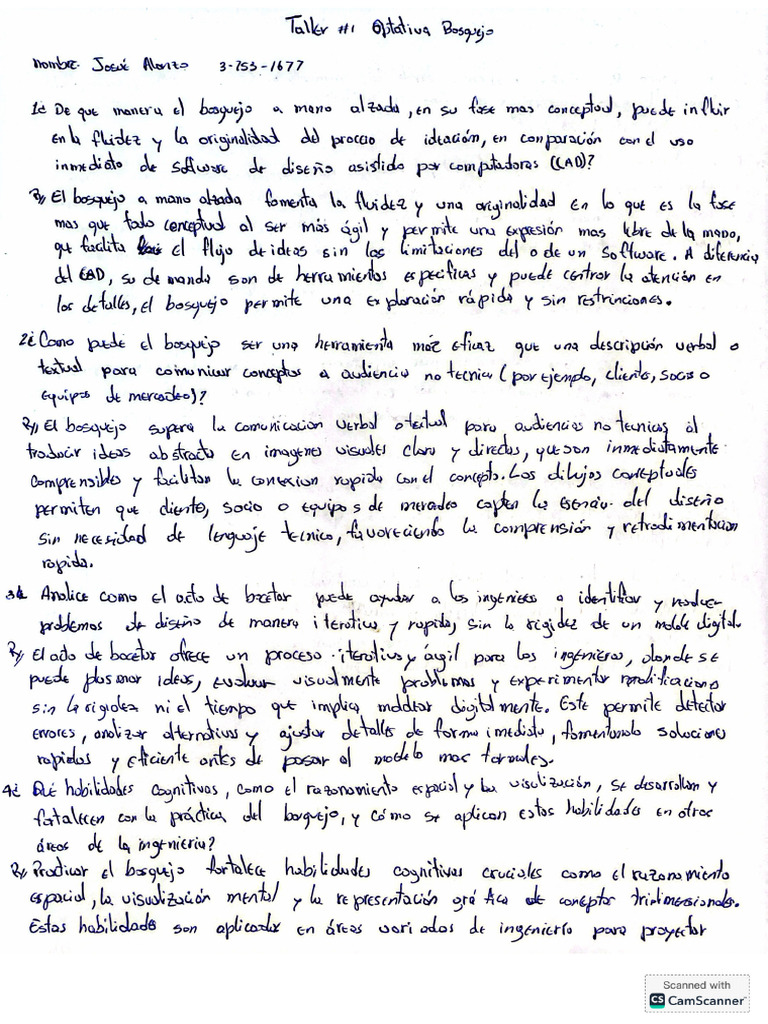 Taller #1 Optativa Bosquejo
nombre: Josué Alonzo 3-753-1677
1¿ De que manera el bosquejo a mano alzada, en su fase mas conceptual, puede influir
en la fluidez y la originalidad del proceso de ideación, en comparación con el uso
inmediato de software de diseño asistido por computadoras (CAD)?
R// El bosquejo a mano alzada fomenta la fluidez y una originalidad en lo que es la fase
mas que todo conceptual al ser más ágil y permite una expresión mas libre de la mano,
que facilita el flujo de ideas sin las limitaciones del o de un software. A diferencia
del CAD, su demanda son de herramientas especificas y puede centrar la atención en
los detalles, el bosquejo permite una exploración rápida y sin restricciones.
2¿ Como puede el bosquejo ser una herramienta más eficaz que una descripción verbal o
textual para comunicar conceptos a audiencia no tecnica (por ejemplo, cliente, socio o
equipos de mercadeo)?
R// El bosquejo supera la comunicación verbal o textual para audiencias no tecnicas al
traducir ideas abstracta en imagenes visuales clara y directas, que son inmediatamente
comprensibles y facilitan la conexion rapida con el concepto. Los dibujos conceptuales
permiten que cliente, socio o equipos de mercadeo capten la esencia del diseño
sin necesidad de lenguaje tecnico, favoreciendo la comprensión y retrodimentacion
rapida.
3¿ Analice como el acto de bocetar puede ayudar a los ingenieros a identificar y resolver
problemas de diseño de manera iterativa y rapida, sin la rigidez de un molde digital.
R// El acto de bocetar ofrece un proceso iterativo y ágil para los ingenieros, donde se
puede plasmar ideas, evaluar visualmente problemas y experimentar modificaciones
sin la rigidez ni el tiempo que implica moldear digitalmente. Este permite detectar
errores, analizar alternativas y ajustar detalles de forma imediata, fomentando soluciones
rapidas y eficiente antes de pasar al modelo mas formales.
4¿ Qué habilidades cognitivas, como el razonamiento espacial y la visulización, se desarrollan y
fortalecen con la práctica del bosquejo, y cómo se aplican estas habilidades en otras
áreas de la ingenieria?
R// Practicar el bosquejo fortalece habilidades cognitivas cruciales como el razonamiento
espacial, la visualización mental y la representación gráfica de conceptos tridimensionales.
Estas habilidades son aplicadas en áreas variados de ingeniería para proyectar
Scanned with
CS CamScanner